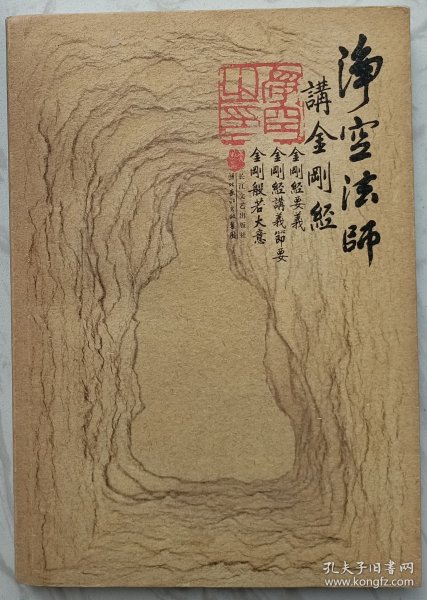 淨空法師
講金剛經
金剛經要義
金剛經講義節要
金剛般若大意
长江文艺出版社
孔夫子旧书网
www.kongfz.com